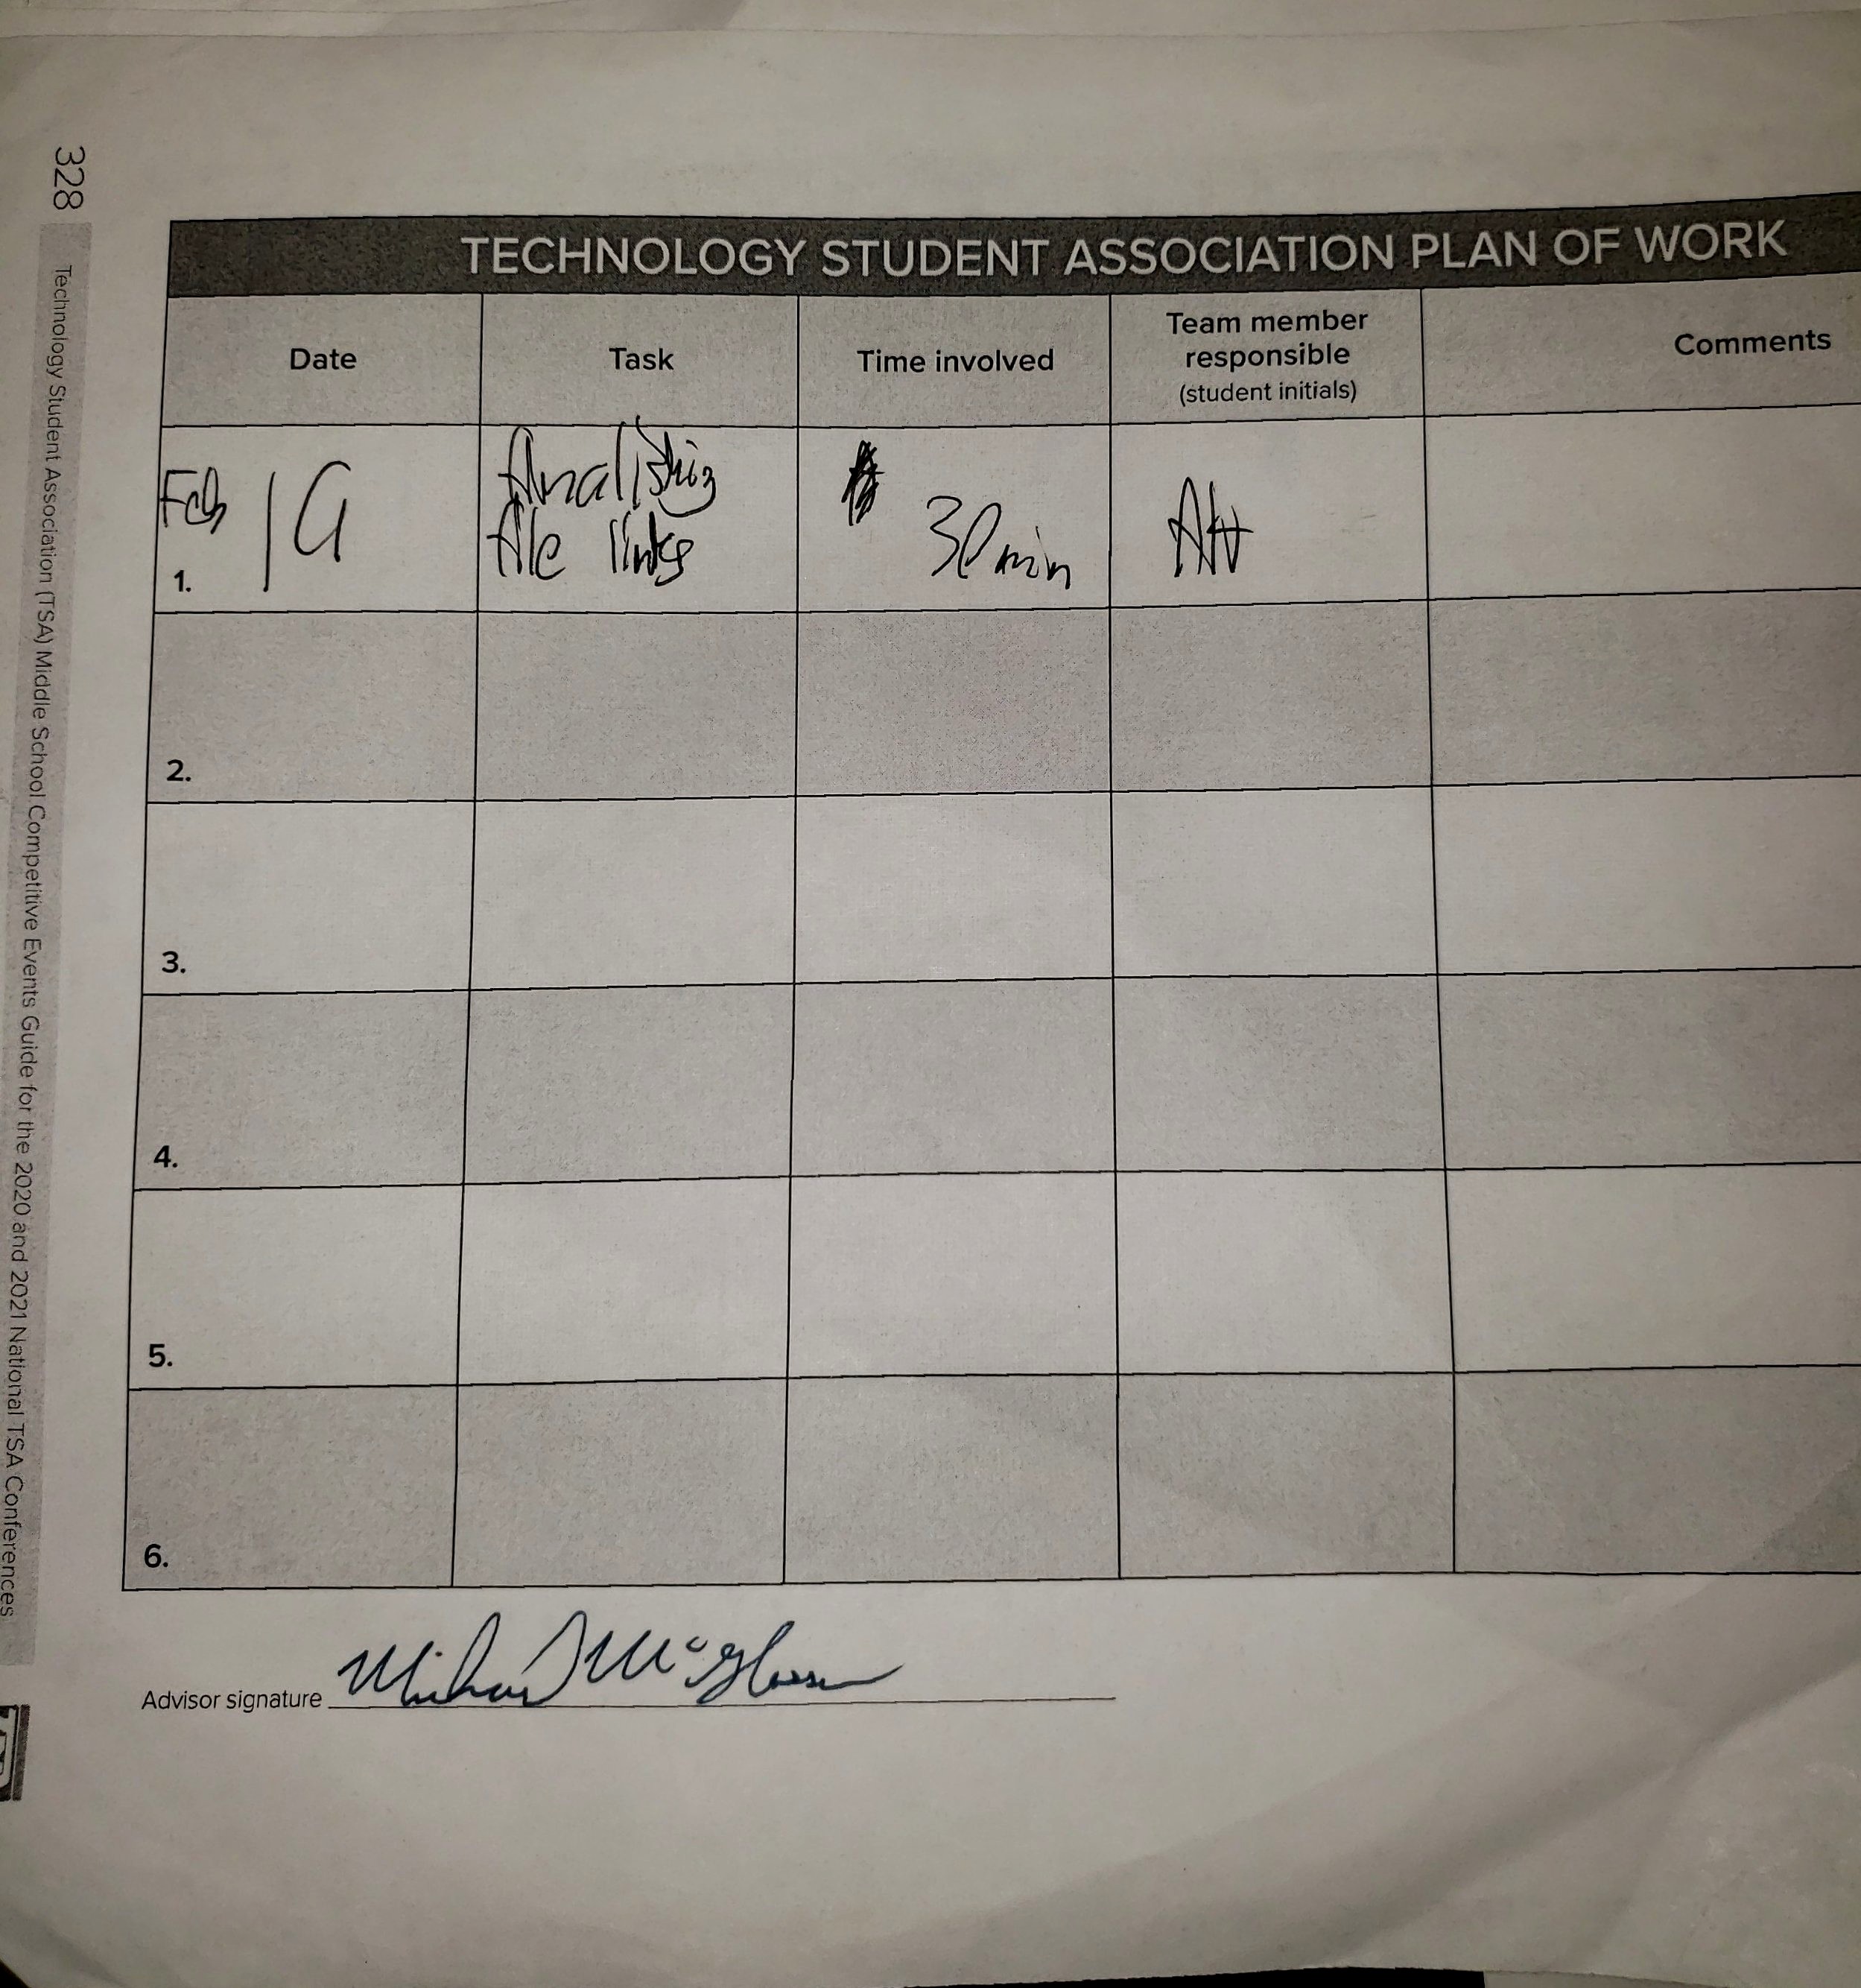 328
Technology Student Association (TSA) Middle School Competitive Events Guide for the 2020 and 2021 National TSA Conferences
TECHNOLOGY STUDENT ASSOCIATION PLAN OF WORK
Date
Task
Time involved
Team member
responsible
(student initials)
Comments
1.
Feb
file links
30 min
2.
3.
4.
5.
6.
Advisor signature